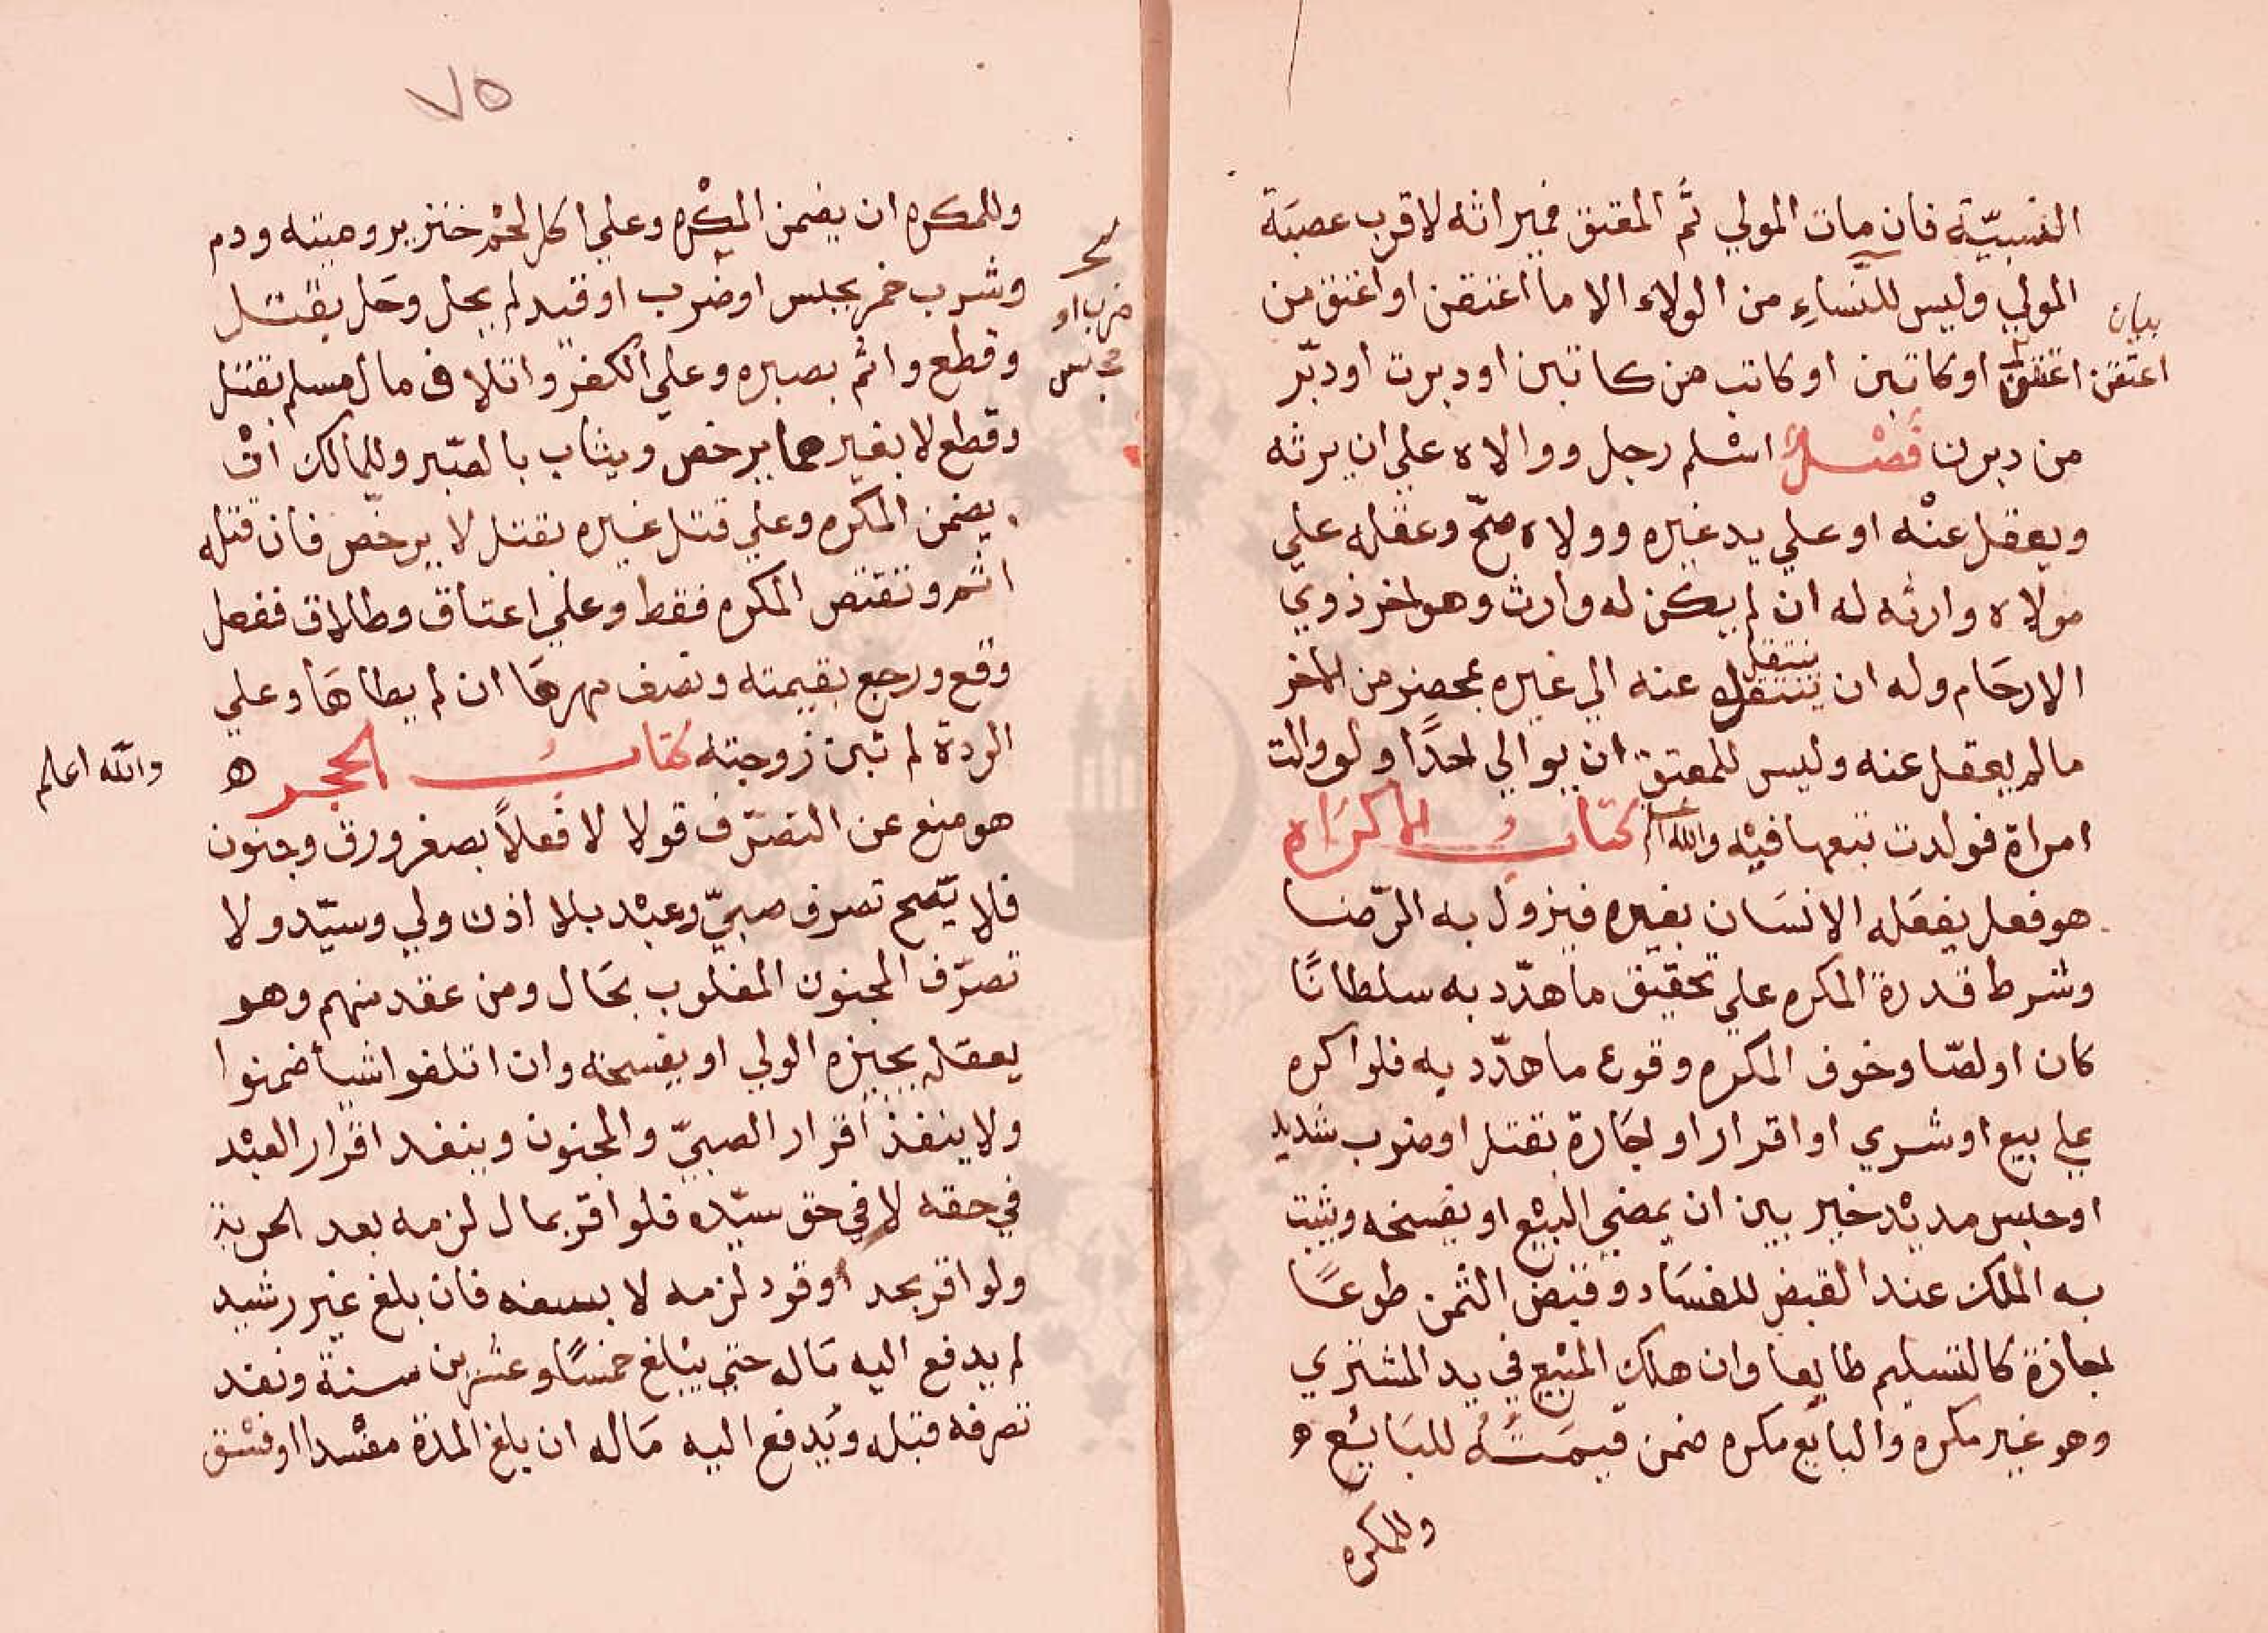 النسبيّة فان مات المولي ثمَّ المعتق فميراثه لاقرب عصبَة
المولي وليس للنّساءِ من الولاء الا ما اعتقن او اعتق من
بيان
اعتقن
اعتقن او كاتبن او كاتب من كاتبن او دبرن او دبّر
من دبرن فَصْـلٌ اسْلم رجل ووالاه علي ان يرثه
ويعقل عنْه او علي يد غيره وولاه صحّ وعقله علي
مولاه وارثه له ان لم يكن له وارث وهو اخر ذوي
الارحَام وله ان ينتقل عنه الي غيره بمحضر من الاخر
ينتقل
ما لم يعقل عنه وليس للمعتق ان يوالي احدًا ولو والت
امراة فولدت تبعها فيْه والله اعلم كتابُ الاكرَاه
هو فعل يفعَله الانسَان بغيره فيزول به الرّضا
وشرط قدرة المكره علي تحقيق ما هدّد به سلطانًا
كان او لصّا وخوف المكره وقوع ما هدّد به فلو اكره
علي بيع او شري او اقرار او اجَارة بقتل او ضرب شديد
او حبس مديْد خير بين ان يمضي البيْع او يفسخه ويثبت
به الملك عند القبض للفسَاد وقبض الثمن طوعًا
اجازة كالتسليم طايعا وان هلك المبْيع في يد المشتري
وهو غير مكره والبايع مكره ضمن قيمَتَهُ للبَايع ه
وللمكره
٧٥
وللمكره ان يضمن المكْره وعلي اكل لحْم خنزير وميتة ودم
وشرب خمر بحبس او ضرب او قيد لم يحل وحَل بقتل
ضرب او
وقطع واثم بصبره وعلي الكفر واتلاف مال مسلم بقتل
وقطع لا بغيرهما يرخص ويثاب بالصّبر وللمالك انْ
يضمن المكره وعلي قتل غيره بقتل لا يرخّص فان قتله
اثم ويقتص المكره فقط وعلي اعتاق وطلاق ففعل
وقع ورجع بقيمته ونصف مهرهَا ان لم يطاهَا وعلي
الردة لم تبن زوجته كتابُ الحجر ه
والله اعلم
هو منع عن التصرّف قولا لا فعلاً بصغر ورق وجنون
فلا يصّح تصرف صبيّ وعبْد بلا اذن ولي وسيّد ولا
تصرّف المجنون المغلوب بحَال ومن عقد منهم وهو
يعقله يجيزه الولي او يفسخه وان اتلفوا شيأ ضمنوا
ولا ينفذ اقرار الصبيّ والمجنون وينفد اقرار العبْد
في حقه لا في حق سيّده فلو اقر بمال لزمه بعد الحرية
ولو اقر بحد او قود لزمه لا بسفه فان بلغ غير رشيد
لم يدفع اليه مَاله حتي يبْلغ خمسًا وعشرين سنة ونفد
تصرفه قبله ويُدفع اليه مَاله ان بلغ المدة مفسْدا او فسْق